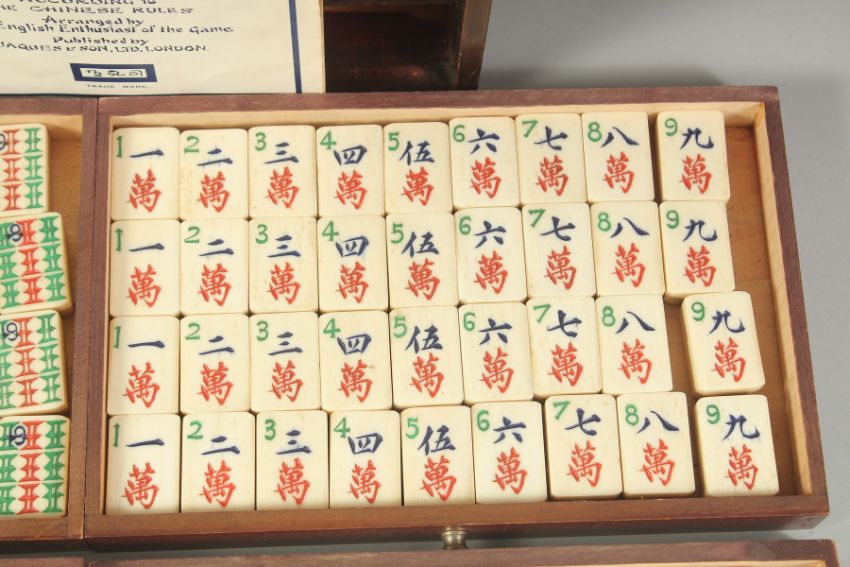 ACCORDING TO
THE CHINESE RULES
Arranged by
English Enthusiast of the Game
Published by
JAQUES & SON, LTD. LONDON.
TRADE MARK.
1 一 2 二 3 三 4 四 5 伍 6 六 7 七 8 八 9 九
萬 萬 萬 萬 萬 萬 萬 萬 萬
1 一 2 二 3 三 4 四 5 伍 6 六 7 七 8 八 9 九
萬 萬 萬 萬 萬 萬 萬 萬 萬
1 一 2 二 3 三 4 四 5 伍 6 六 7 七 8 八 9 九
萬 萬 萬 萬 萬 萬 萬 萬 萬
1 一 2 二 3 三 4 四 5 伍 6 六 7 七 8 八 9 九
萬 萬 萬 萬 萬 萬 萬 萬 萬
9
9
9
9